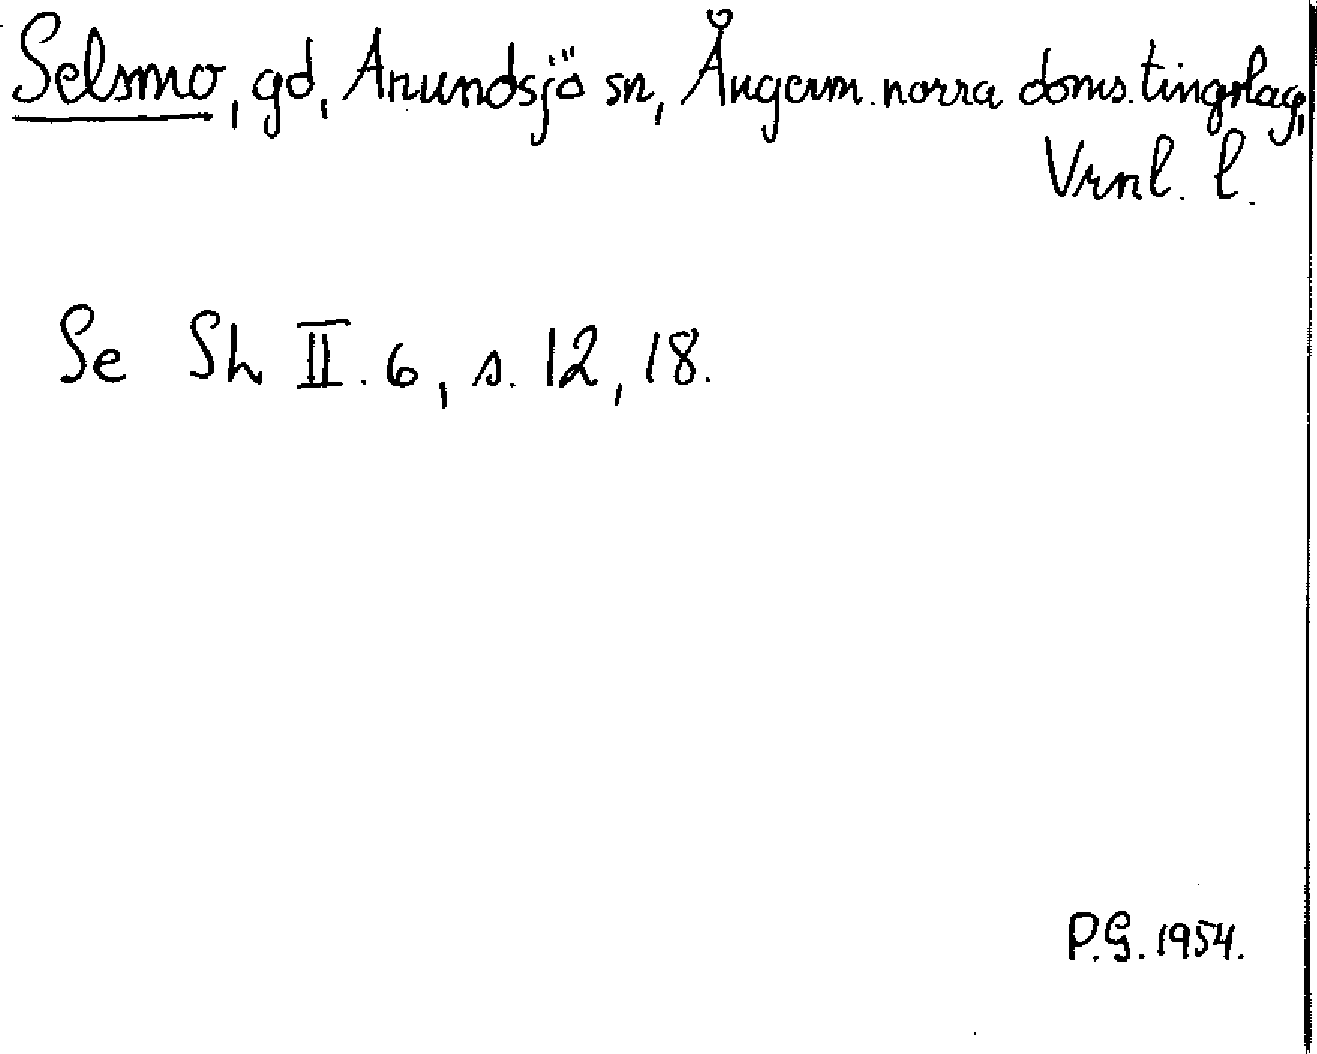 Selsmo, gd, Anundsjö sn, Ångerm. norra doms. tingslag,
Vrnl. l.
Se Sh II. 6, s. 12, 18.
P.G. 1954.